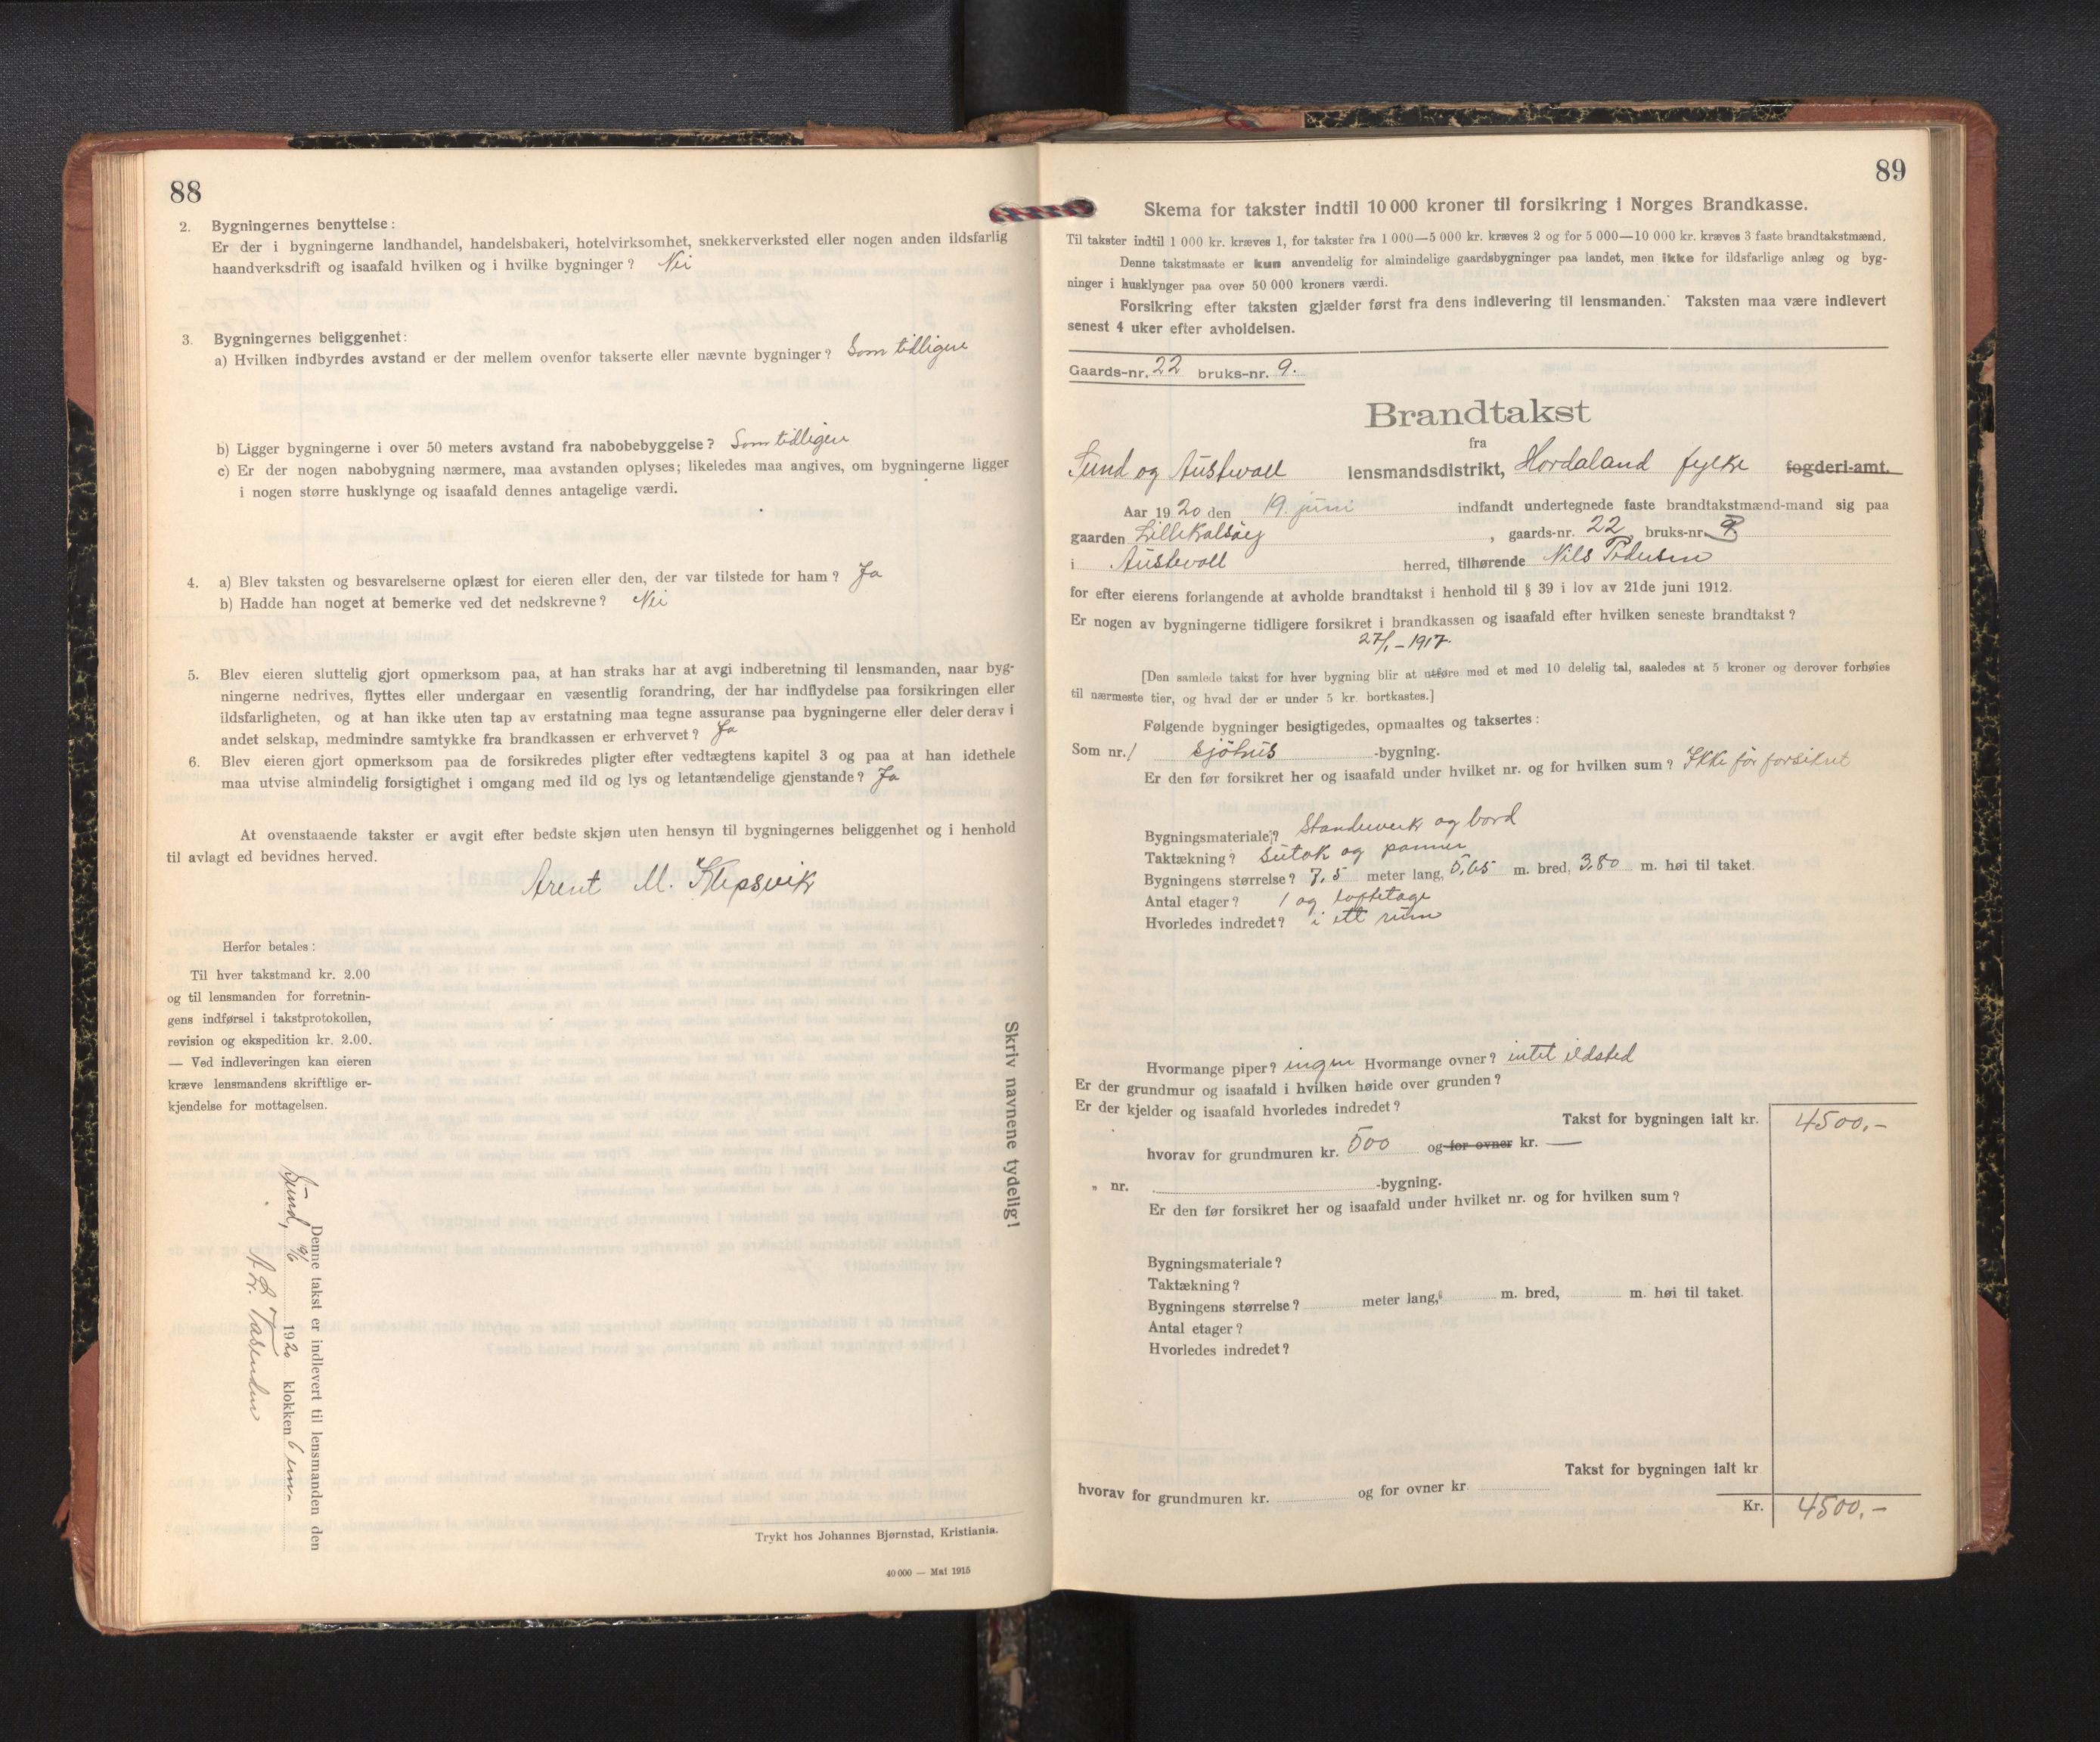 88
2. Bygningernes benyttelse:
Er der i bygningerne landhandel, handelsbakeri, hotelvirksomhet, snekkerverksted eller nogen anden ildsfarlig
haandverksdrift og isaafald hvilken og i hvilke bygninger? Nei
3. Bygningernes beliggenhet:
a) Hvilken indbyrdes avstand er der mellem ovenfor takserte eller nævnte bygninger? Som tidligere
b) Ligger bygningerne i over 50 meters avstand fra nabobebyggelse? Som tidligere
c) Er der nogen nabobygning nærmere, maa avstanden oplyses; likeledes maa angives, om bygningerne ligger
i nogen større husklynge og isaafald dennes antagelige værdi.
4. a) Blev taksten og besvarelserne oplæst for eieren eller den, der var tilstede for ham? Ja
b) Hadde han noget at bemerke ved det nedskrevne? Nei
5. Blev eieren sluttelig gjort opmerksom paa, at han straks har at avgi indberetning til lensmanden, naar byg-
ningerne nedrives, flyttes eller undergaar en væsentlig forandring, der har indflydelse paa forsikringen eller
ildsfarligheten, og at han ikke uten tap av erstatning maa tegne assuranse paa bygningerne eller deler derav i
andet selskap, medmindre samtykke fra brandkassen er erhvervet? Ja
6. Blev eieren gjort opmerksom paa de forsikredes pligter efter vedtægtens kapitel 3 og paa at han idethele
maa utvise almindelig forsigtighet i omgang med ild og lys og letantændelige gjenstande? Ja
At ovenstaaende takster er avgit efter bedste skjøn uten hensyn til bygningernes beliggenhet og i henhold
til avlagt ed bevidnes herved.
Arent M. Klepsvik
Herfor betales:
Til hver takstmand kr. 2.00
og til lensmanden for forretnin-
gens indførsel i takstprotokollen,
revision og ekspedition kr. 2.00.
— Ved indleveringen kan eieren
kræve lensmandens skriftlige er-
kjendelse for mottagelsen.
Skriv navnene tydelig!
Denne takst er indlevert til lensmanden den
Sund, 1920 klokken 6 em.
Trykt hos Johannes Bjørnstad, Kristiania.
40 000 — Mai 1915
89
Skema for takster indtil 10 000 kroner til forsikring i Norges Brandkasse.
Til takster indtil 1 000 kr. kræves 1, for takster fra 1 000—5 000 kr. kræves 2 og for 5 000—10 000 kr. kræves 3 faste brandtakstmænd.
Denne takstmaate er kun anvendelig for almindelige gaardsbygninger paa landet, men ikke for ildsfarlige anlæg og byg-
ninger i husklynger paa over 50 000 kroners værdi.
Forsikring efter taksten gjælder først fra dens indlevering til lensmanden. Taksten maa være indlevert
senest 4 uker efter avholdelsen.
Gaards-nr. 22 bruks-nr. 9.
Brandtakst
fra
Sund og Austevoll lensmandsdistrikt, Hordaland fylke fogderi-amt.
Aar 1920 den 19. juni indfandt undertegnede faste brandtakstmænd-mand sig paa
gaarden Lillekalsøy, gaards-nr. 22 bruks-nr. 9
i Austevoll herred, tilhørende Nils Pedersen
for efter eierens forlangende at avholde brandtakst i henhold til § 39 i lov av 21de juni 1912.
Er nogen av bygningerne tidligere forsikret i brandkassen og isaafald efter hvilken seneste brandtakst?
27/1 - 1917.
[Den samlede takst for hver bygning blir at utføre med et med 10 delelig tal, saaledes at 5 kroner og derover forhøies
til nærmeste tier, og hvad der er under 5 kr. bortkastes.]
Følgende bygninger besigtigedes, opmaaltes og taksertes:
Som nr. 1 sjöhus -bygning.
Er den før forsikret her og isaafald under hvilket nr. og for hvilken sum? Ikke før forsikret
Bygningsmateriale? Standerverk og bord
Taktækning? Sutak og panner
Bygningens størrelse? 7,5 meter lang, 5,65 m. bred, 3,80 m. høi til taket.
Antal etager? 1 og loftetage
Hvorledes indredet? i ett rum
Hvormange piper? ingen Hvormange ovner? intet ildsted
Er der grundmur og isaafald i hvilken høide over grunden?
Er der kjelder og isaafald hvorledes indredet?
Takst for bygningen ialt kr. 4500,-
hvorav for grundmuren kr. 500 og for ovner kr. —
" nr. -bygning.
Er den før forsikret her og isaafald under hvilket nr. og for hvilken sum?
Bygningsmateriale?
Taktækning?
Bygningens størrelse? meter lang, m. bred, m. høi til taket.
Antal etager?
Hvorledes indredet?
Takst for bygningen ialt kr
hvorav for grundmuren kr. og for ovner kr
Kr. 4500,-